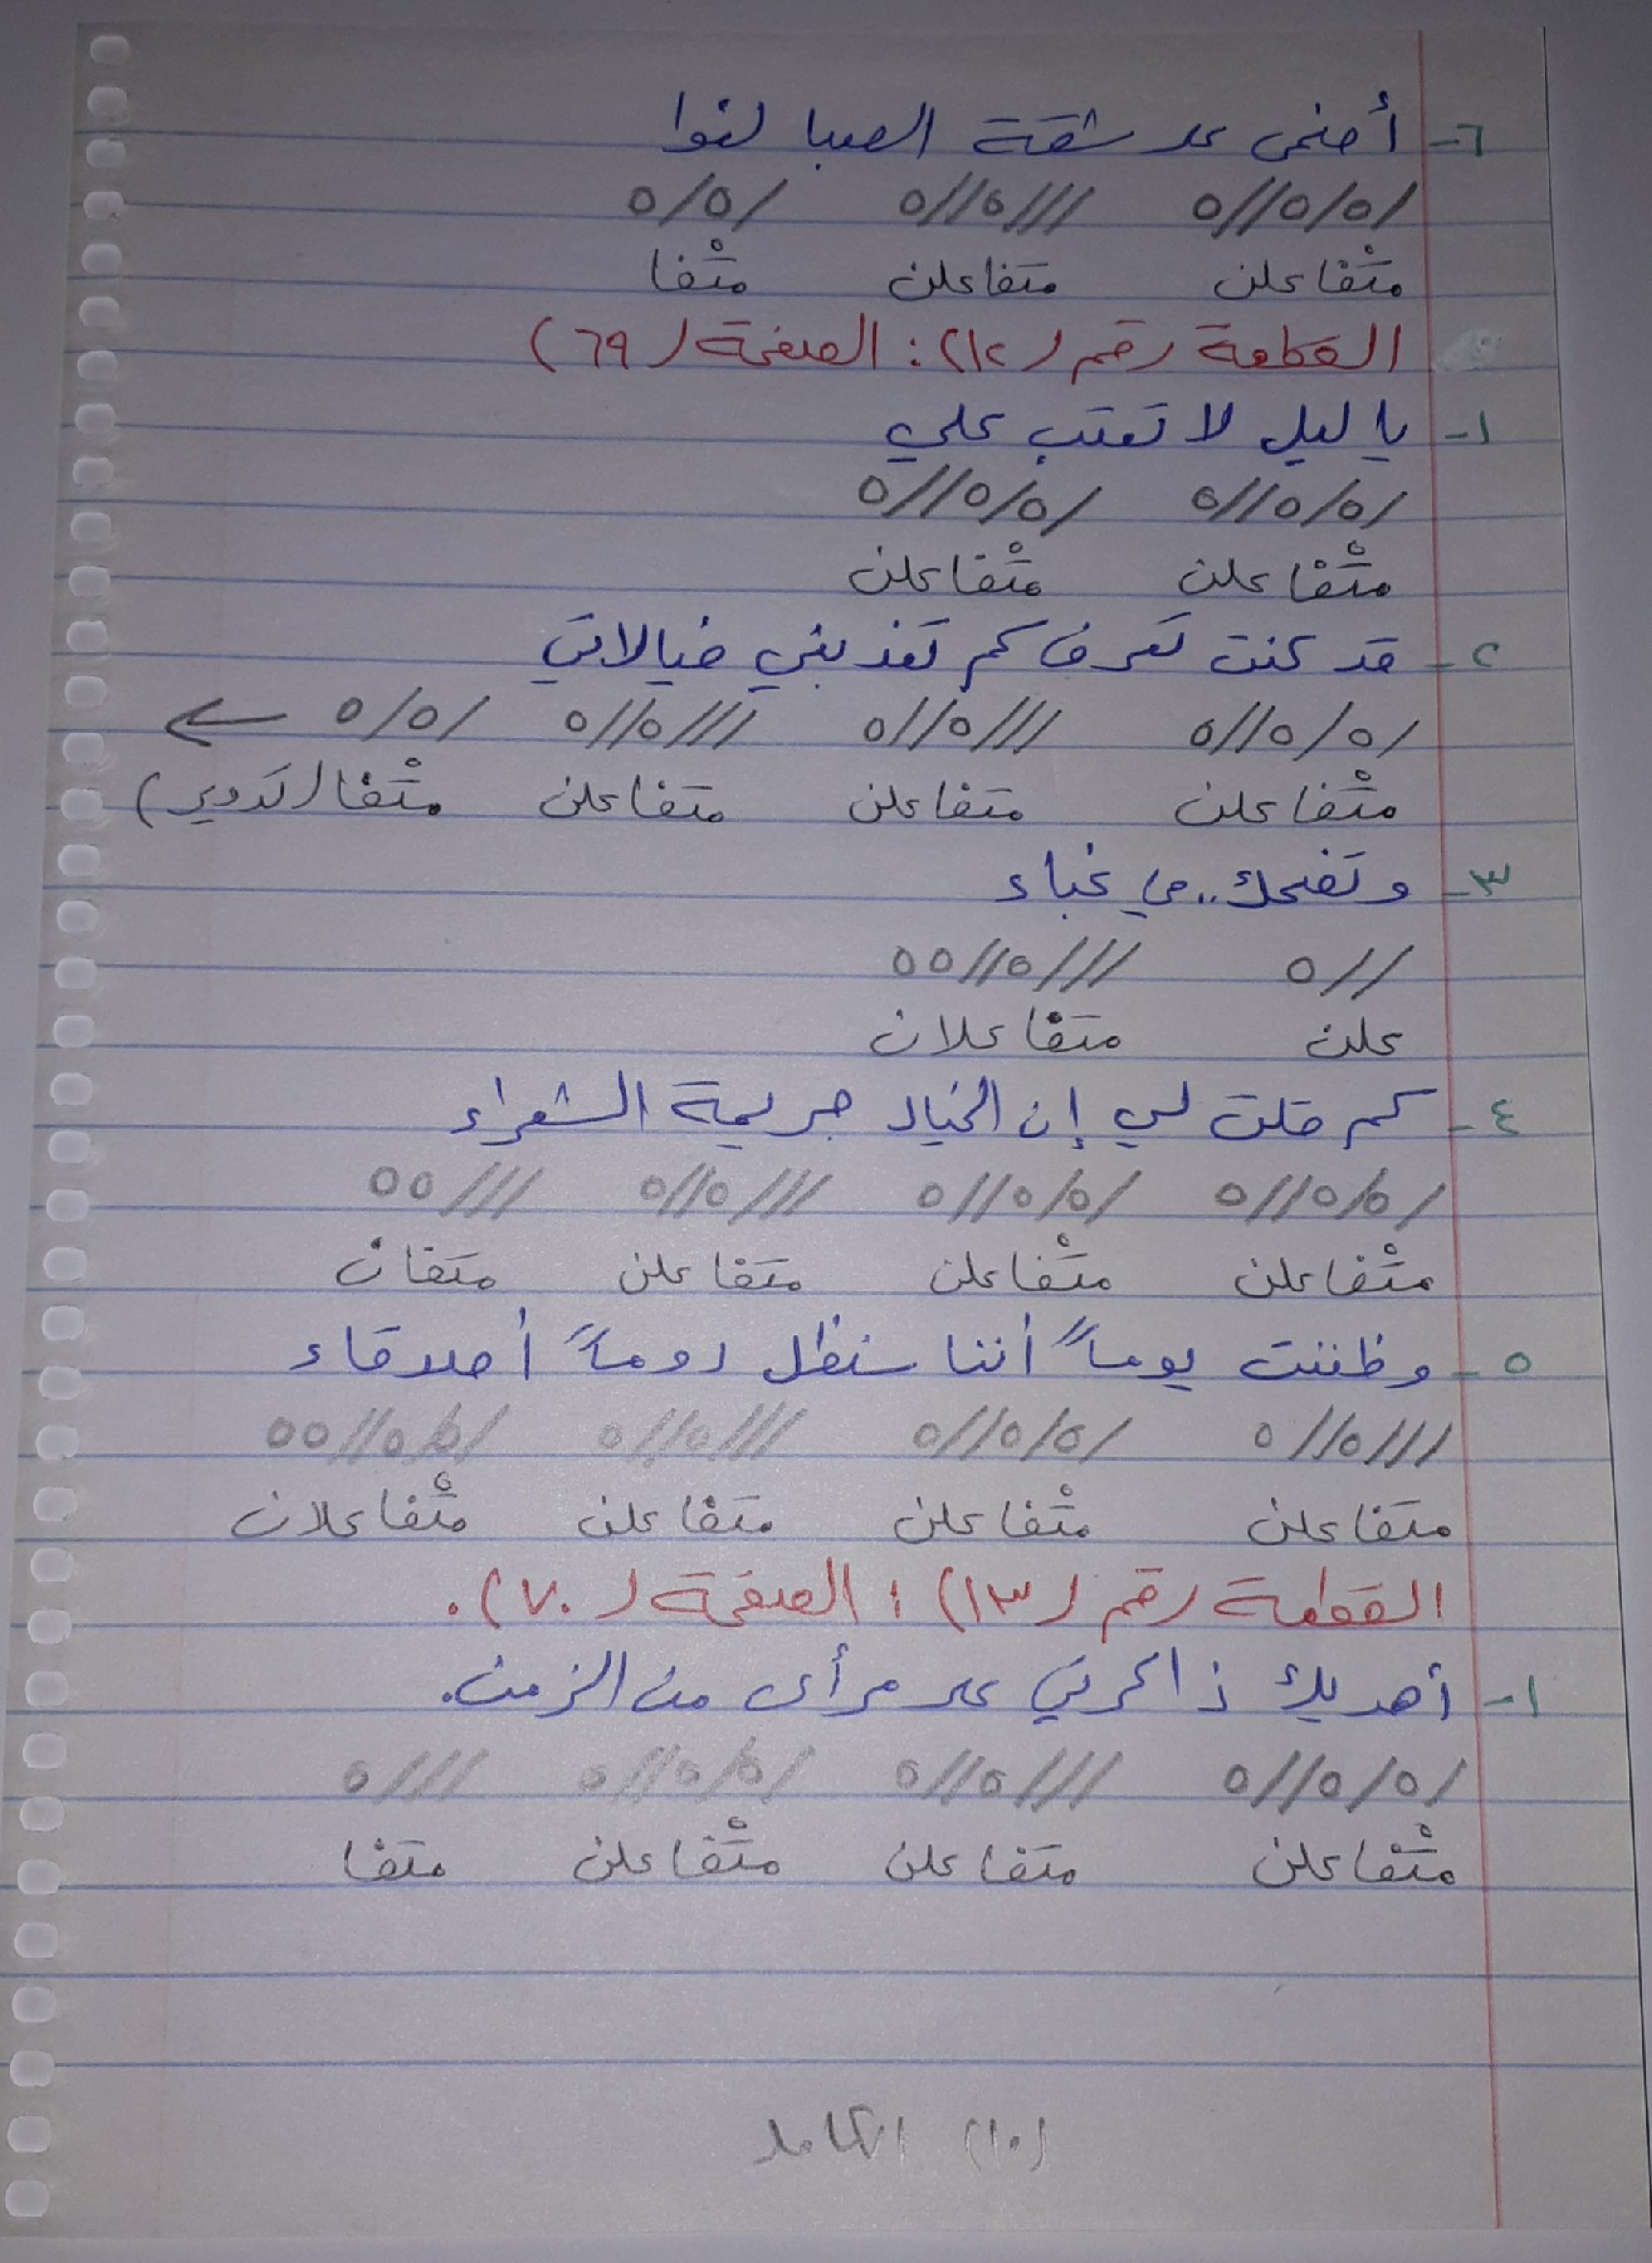 ٦- أضحى على شقة الصبا لغوا
/٥/٥//٥ ///٥//٥ /٥/٥
متْفاعلن متفاعلن متْفا
القطعة رقم (١٢): الصفحة (٦٩)
١- يا ليل لا تعتب علي
/٥/٥//٥ /٥/٥//٥
متْفاعلن متْفاعلن
٢- قد كنت تعرف كم تعذبني خيالاتي
/٥/٥//٥ ///٥//٥ ///٥//٥ /٥/٥ ←
متْفاعلن متفاعلن متفاعلن متْفا (تدوير)
٣- وتضحك.. في غباء
//٥ ///٥//٥٥
علن متفاعلان
٤- كم قلت لي إن الخيال جريمة الشعراء
/٥/٥//٥ /٥/٥//٥ ///٥//٥ ///٥٥
متْفاعلن متْفاعلن متفاعلن متفان
٥- وظننت يوماً أننا سنظل دوماً أصدقاء
///٥//٥ /٥/٥//٥ ///٥//٥ /٥/٥//٥٥
متفاعلن متْفاعلن متفاعلن متْفاعلان
القطعة رقم (١٣): الصفحة (٧٠).
١- أهديك ذاكرتي على مرأى من الزمن.
/٥/٥//٥ ///٥//٥ /٥/٥//٥ ///٥
متْفاعلن متفاعلن متْفاعلن متفا
(١٠) الكامل